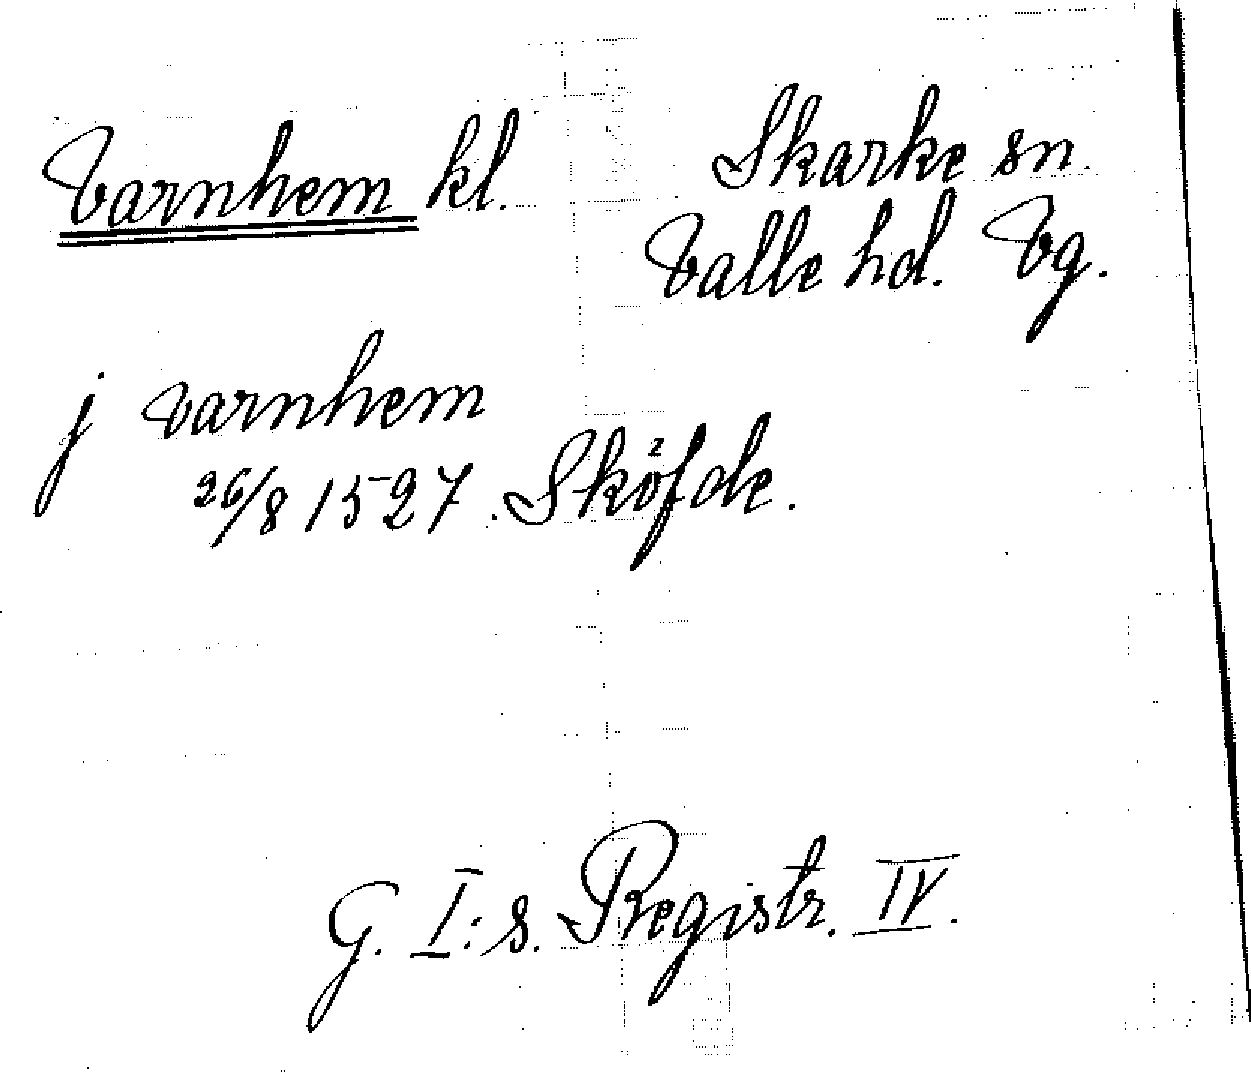 Varnhem kl. Skarke sn.
Valle hd. Vg.
j varnhem
26/8 1527. Sköfde.
G. I:s. Registr. IV.